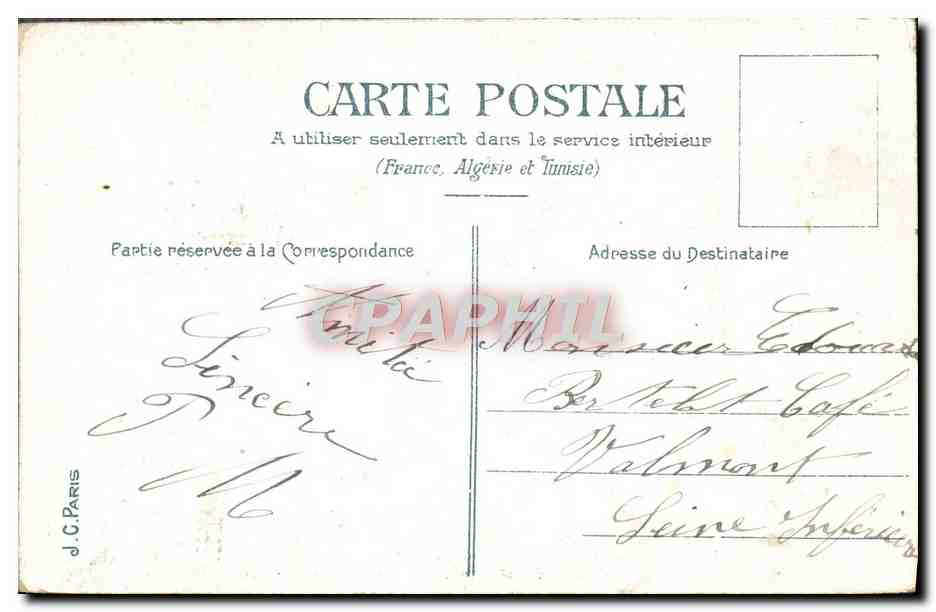 CARTE POSTALE
A utiliser seulement dans le service intérieur
(France, Algérie et Tunisie)
Partie réservée à la Correspondance
Adresse du Destinataire
CPAPHIL
Amitié
Sincère
M
Monsieur Edouard
Café
Valmont
Seine Inférieure
J.C. PARIS